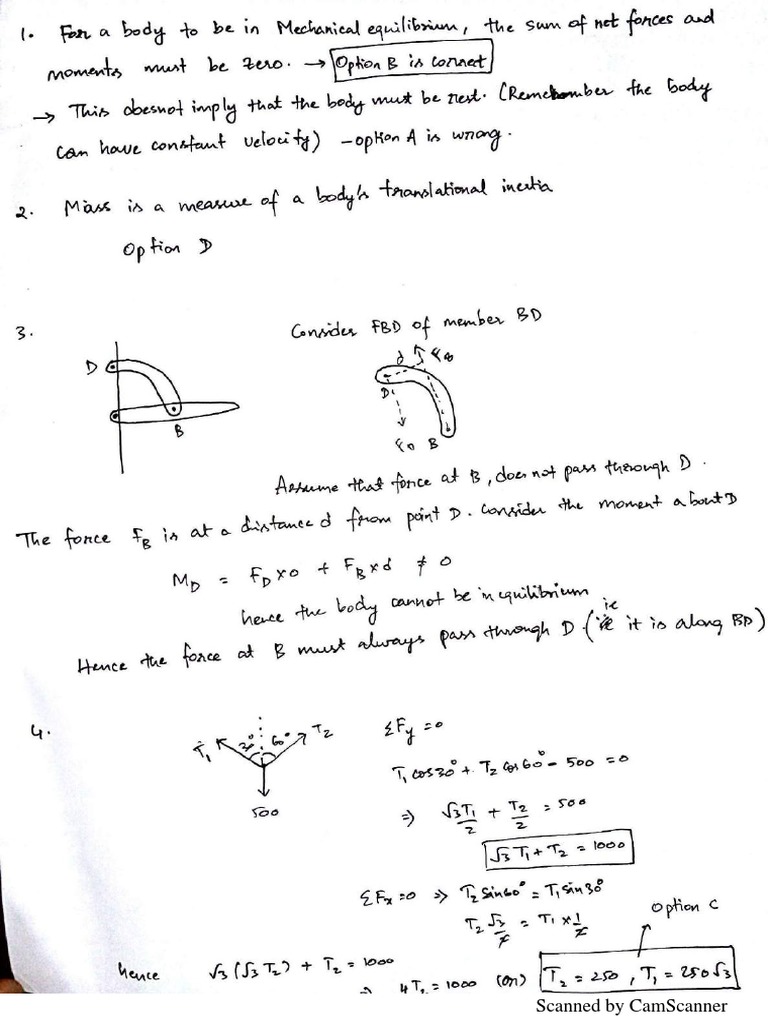 1. For a body to be in Mechanical equilibrium, the sum of net forces and
moments must be zero. → Option B is correct
→ This doesnot imply that the body must be rest. (Remember the body
can have constant velocity) - option A is wrong.
2. Mass is a measure of a body's translational inertia
Option D
3. Consider FBD of member BD
D
B
d F_B
D
F_D B
Assume that force at B, does not pass through D.
The force F_B is at a distance d from point D. Consider the moment about D
M_D = F_D x 0 + F_B x d ≠ 0
hence the body cannot be in equilibrium
Hence the force at B must always pass through D. (ie it is along BD)
4. T_1 30° 60° T_2
500
ΣF_y = 0
T_1 cos30° + T_2 cos60° - 500 = 0
⇒ √3T_1/2 + T_2/2 = 500
√3 T_1 + T_2 = 1000
ΣF_x = 0 ⇒ T_2 sin60° = T_1 sin30°
T_2 √3/2 = T_1 x 1/2
Option C
hence √3 (√3 T_2) + T_2 = 1000
⇒ 4T_2 = 1000 (or) T_2 = 250, T_1 = 250√3
Scanned by CamScanner